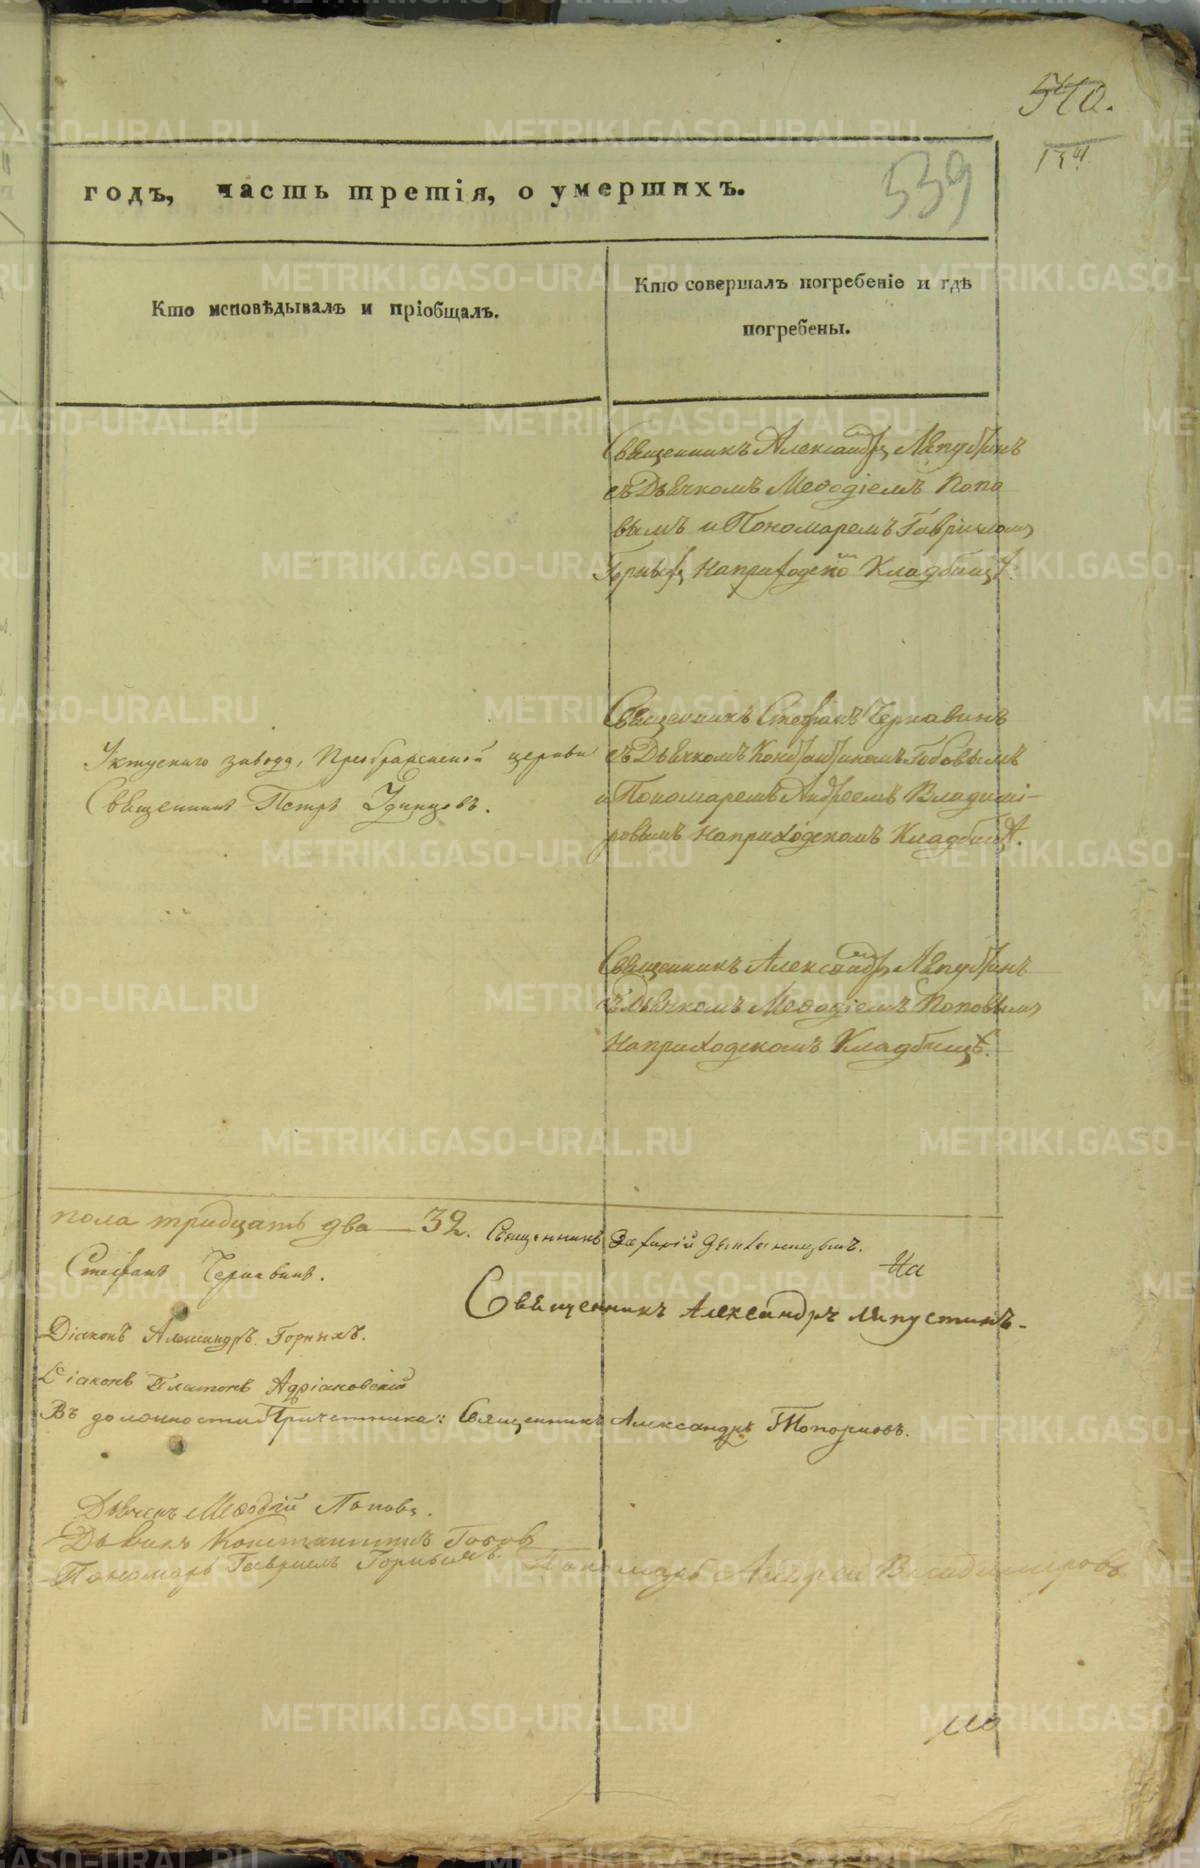 540.
539
годъ, часть третія, о умершихъ.
Кто исповѣдывалъ и пріобщалъ.
Кто совершалъ погребеніе и гдѣ
погребены.
Священникъ Александръ Ляпустинъ
съ Дьячкомъ Меѳодіемъ Попо
вымъ и Пономаремъ Гавриломъ
на приходском Кладбищѣ.
Уктускаго завода, Преображенской церкви
Священникъ Петръ Удинцовъ.
Священникъ Стефанъ Чернавинъ
съ Дьячкомъ Константиномъ
и Пономаремъ Андреемъ Владими-
ровымъ на приходскомъ Кладбищѣ.
Священникъ Александръ Ляпустинъ
съ Дьячкомъ Меѳодіемъ Поповымъ
на приходскомъ Кладбищѣ.
пола тридцать два — 32. Священникъ
Стефанъ Чернавинъ.
Священникъ Александръ Ляпустинъ.
Діаконъ Александръ Горныхъ.
Діаконъ Платонъ Адріановскій
Въ должности Причетника: Священникъ Александръ Топорковъ.
Дьячекъ Меѳодій Поповъ.
Дьячекъ Константинъ
Пономарь Гавриилъ
Пономарь Андрей Владимировъ
METRIKI.GASO-URAL.RU